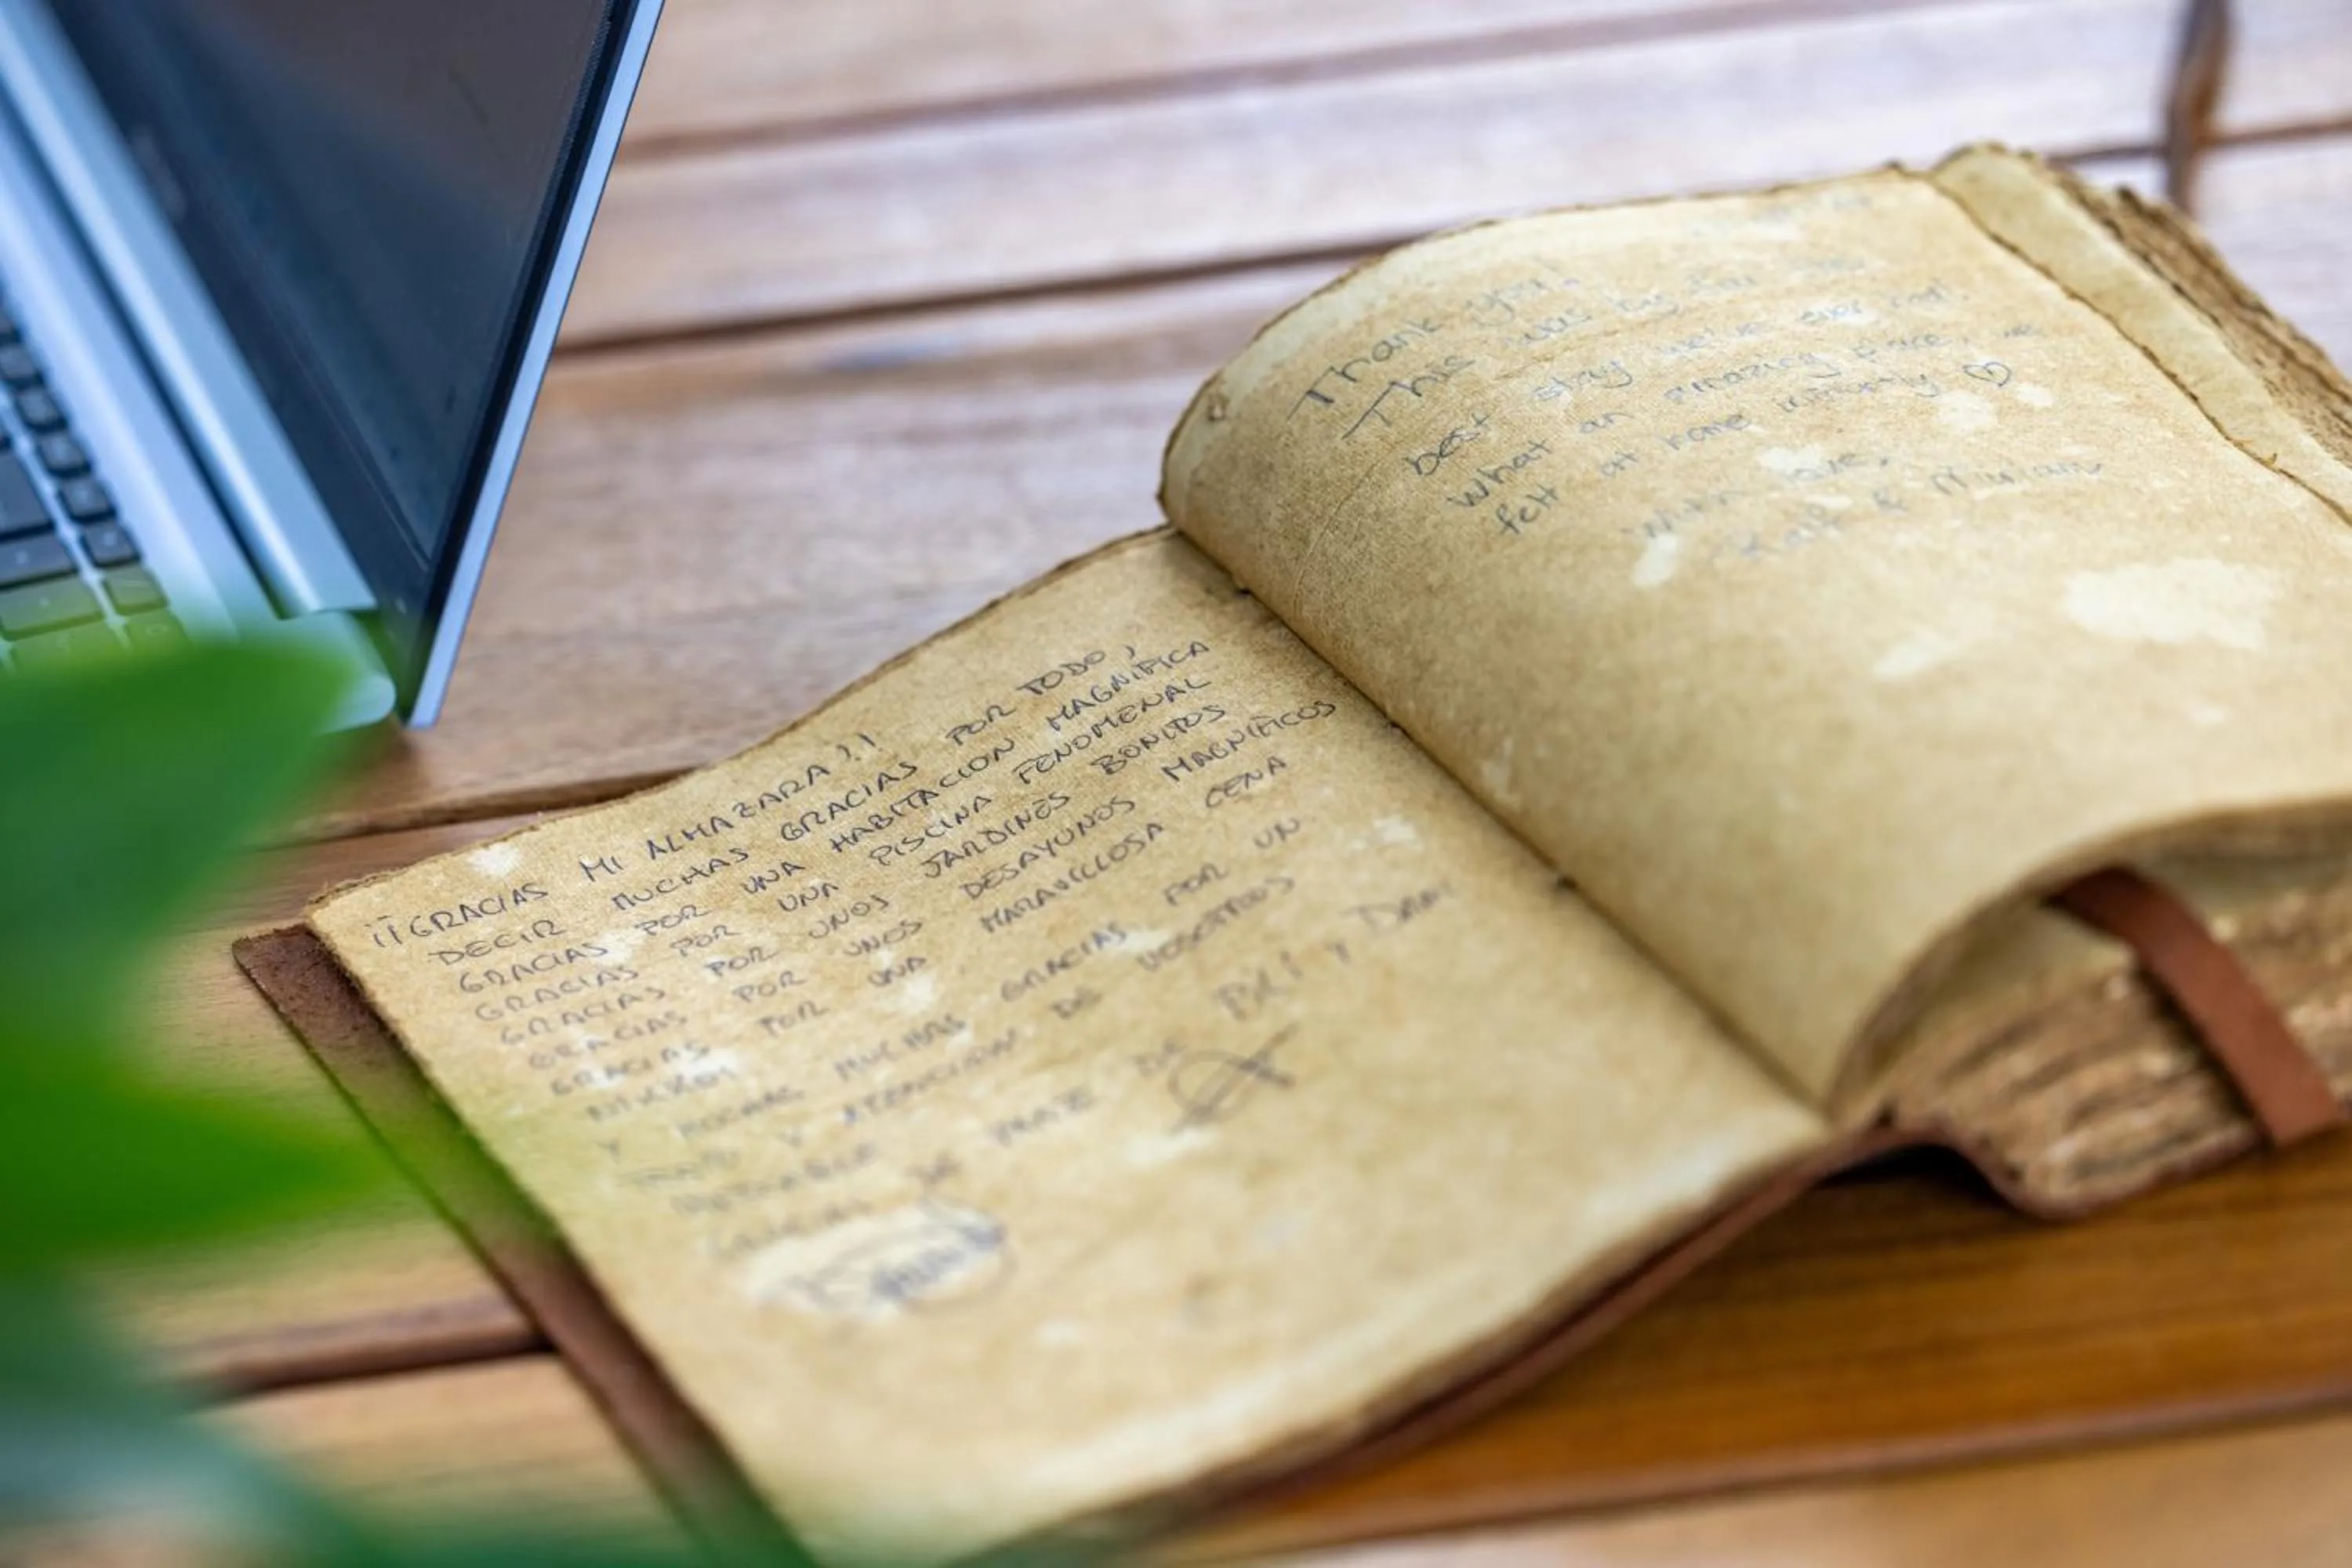 ¡¡GRACIAS MI ALMAZARA!!
DECIR MUCHAS GRACIAS POR TODO,
GRACIAS POR UNA HABITACION MAGNIFICA
GRACIAS POR UNA PISCINA FENOMENAL
GRACIAS POR UNOS JARDINES BONITOS
GRACIAS POR UNOS DESAYUNOS MAGNIFICOS
GRACIAS POR UNA MARAVILLOSA CENA
Y MUCHAS MUCHAS GRACIAS POR UN
TRATO Y ATENCION DE VOSOTROS
DE PARTE DE PILI Y
Thank you!
This was by far the
best stay we've ever had!
What an amazing place, we
felt at home instantly ♡
With love,
& Miriam